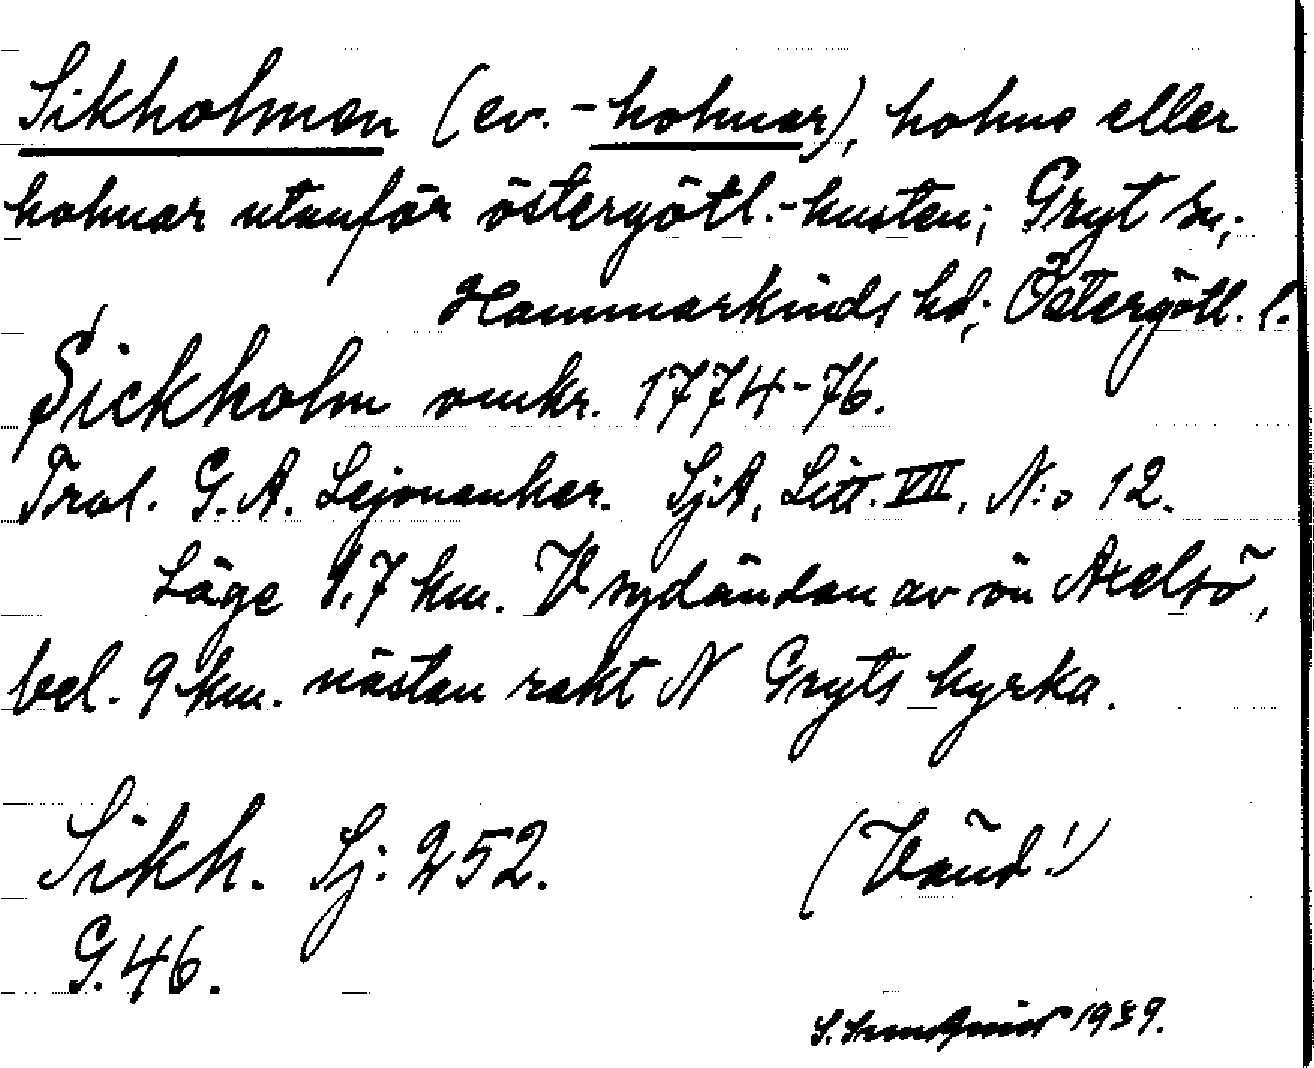 Sikholmen (ev. -holmar), holme eller
holmar utanför östergötl.-kusten; Gryt sn,
Hammarkinds hd; Östergötl. l.
Sickholm omkr. 1774-76.
Trol. G. A. Lejonanker. SjA, Litt. VII, N:o 12.
Läge 1,7 km. V sydändan av ön Axelsö,
bel. 9 km. nästan rakt N Gryts kyrka.
Sikh. Sj: 252. (Vänd!)
G. 46.
S. 1939.